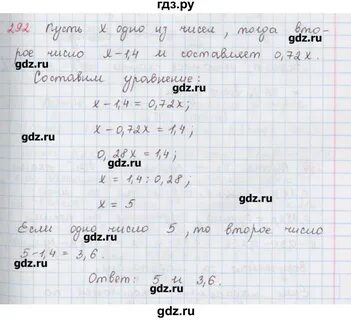 гдз.ру
292 Пусть x одно из чисел, тогда вто-
рое число x-1,4 и составляет 0,72x.
Составим уравнение:
x-1,4=0,72x;
x-0,72x=1,4;
0,28x=1,4;
x=1,4:0,28,
x=5
Если одно число 5, то второе число
5-1,4=3,6.
Ответ: 5 и 3,6.
gdz.ru
gdz.ru
gdz.ru
gdz.ru
gdz.ru
gdz.ru
gdz.ru
gdz.ru
gdz.ru